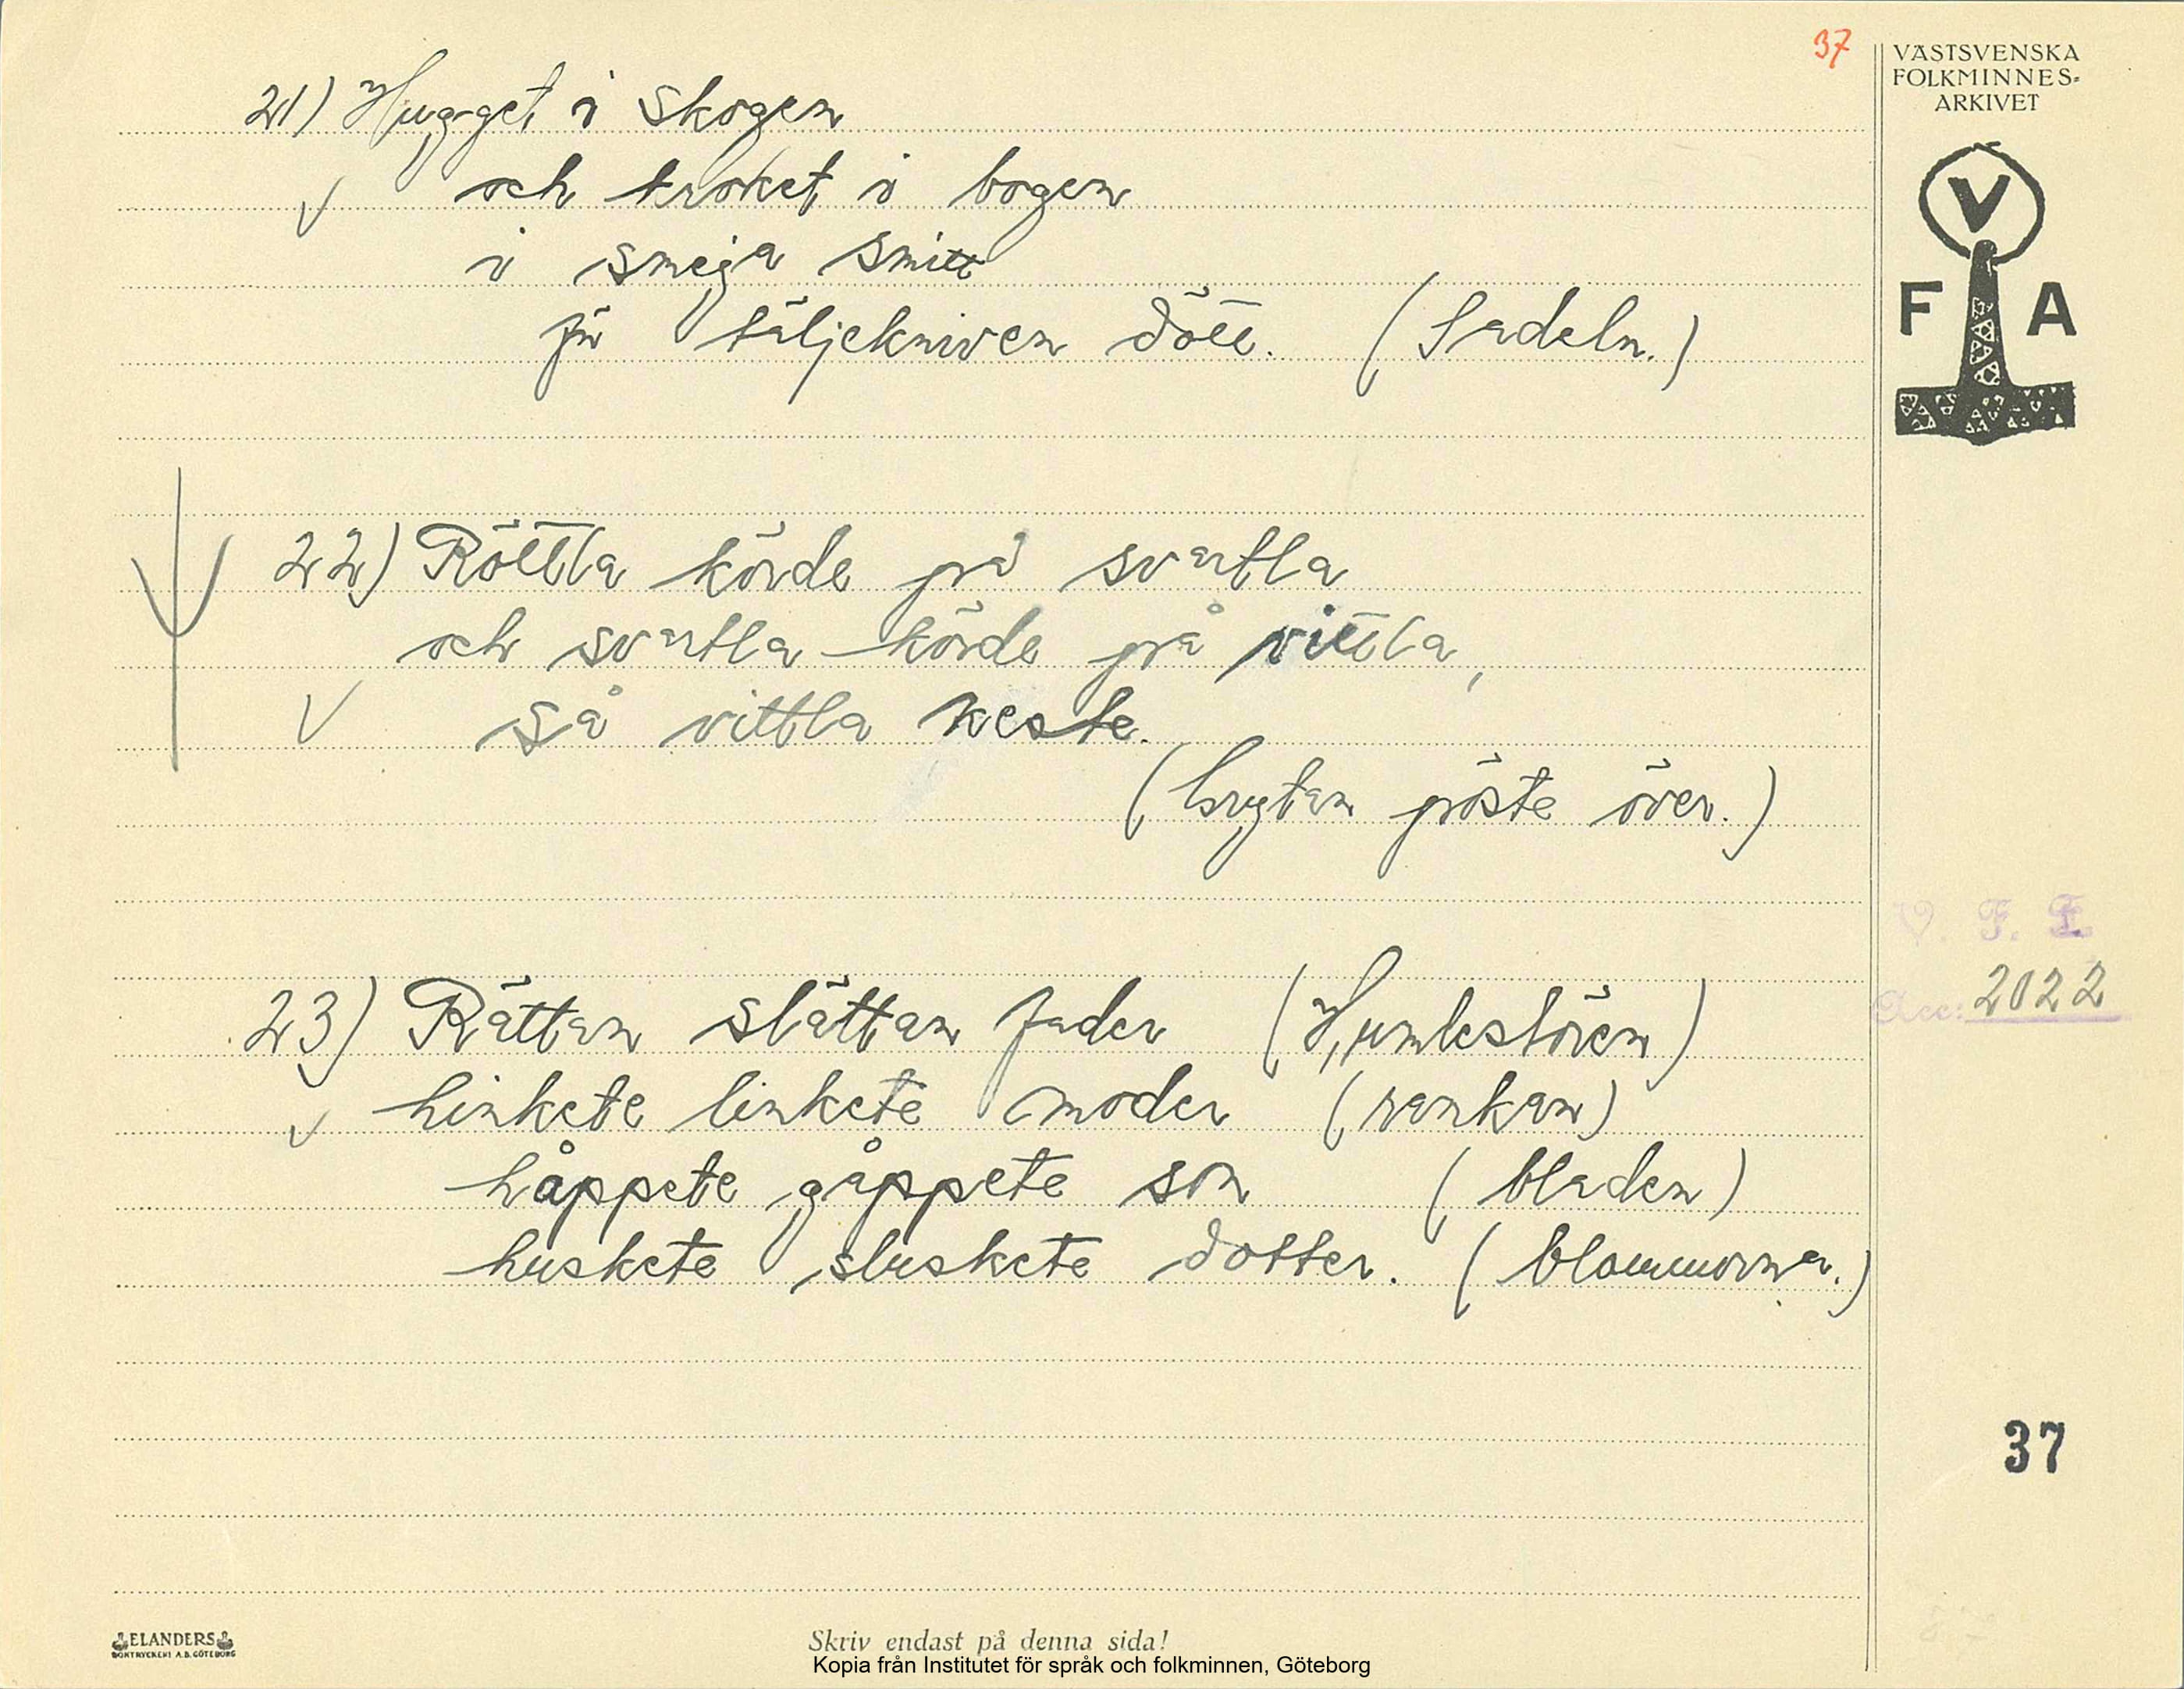 37
VÄSTSVENSKA
FOLKMINNES-
ARKIVET
V
F A
21) Hugget i skogen
och kroket i bogen
i smeja smitt
på täljekniven dött. (Sadeln.)
22) Röttla körde på svartla
och svartla körde på vittla,
så vittla keste.
(Grytan pöste över.)
23) Rättan slättan fader (Humlestören)
hinkete linkete moder (rankan)
håppete gåppete son (bladen)
huskete sluskete dotter. (blommorna.)
V. F. F.
Acc: 2022
37
ELANDERS
BOKTRYCKERI A.B. GÖTEBORG
Skriv endast på denna sida!
Kopia från Institutet för språk och folkminnen, Göteborg